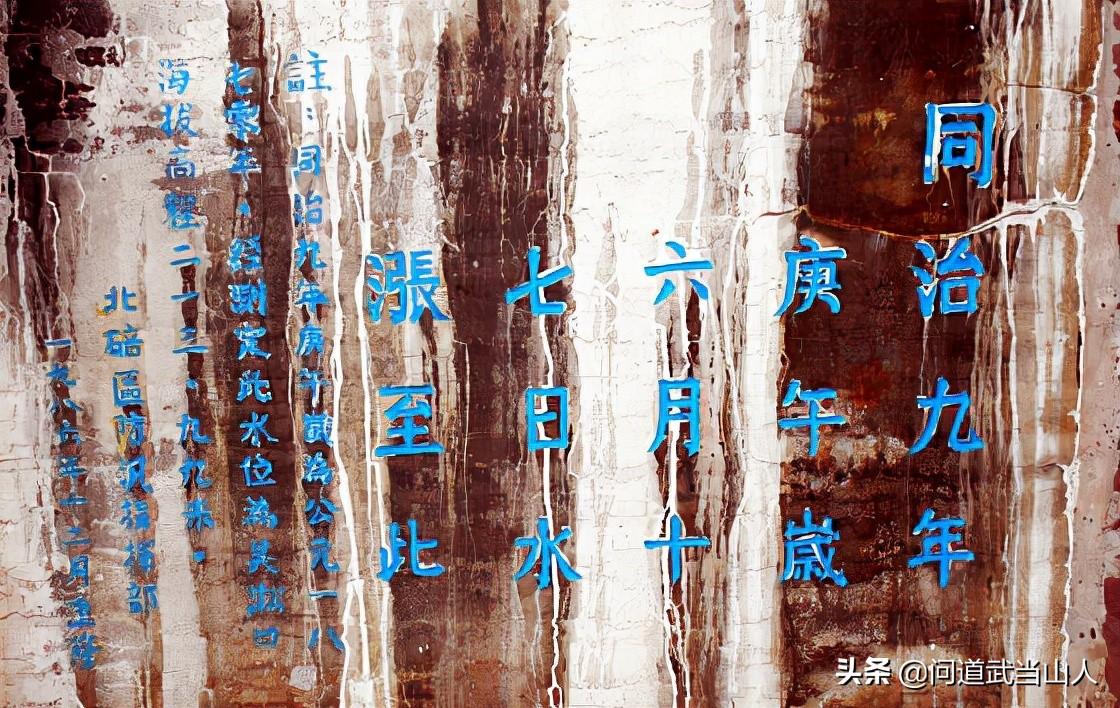 同治九年
庚午歲
六月十
七日水
漲至此
註：同治九年庚午歲為公元一八
七零年．經測定此水位為吳淞口
海拔高程二一三．九九米．
北碚區防汛指揮部
一九八六年十二月重
头条 @问道武当山人